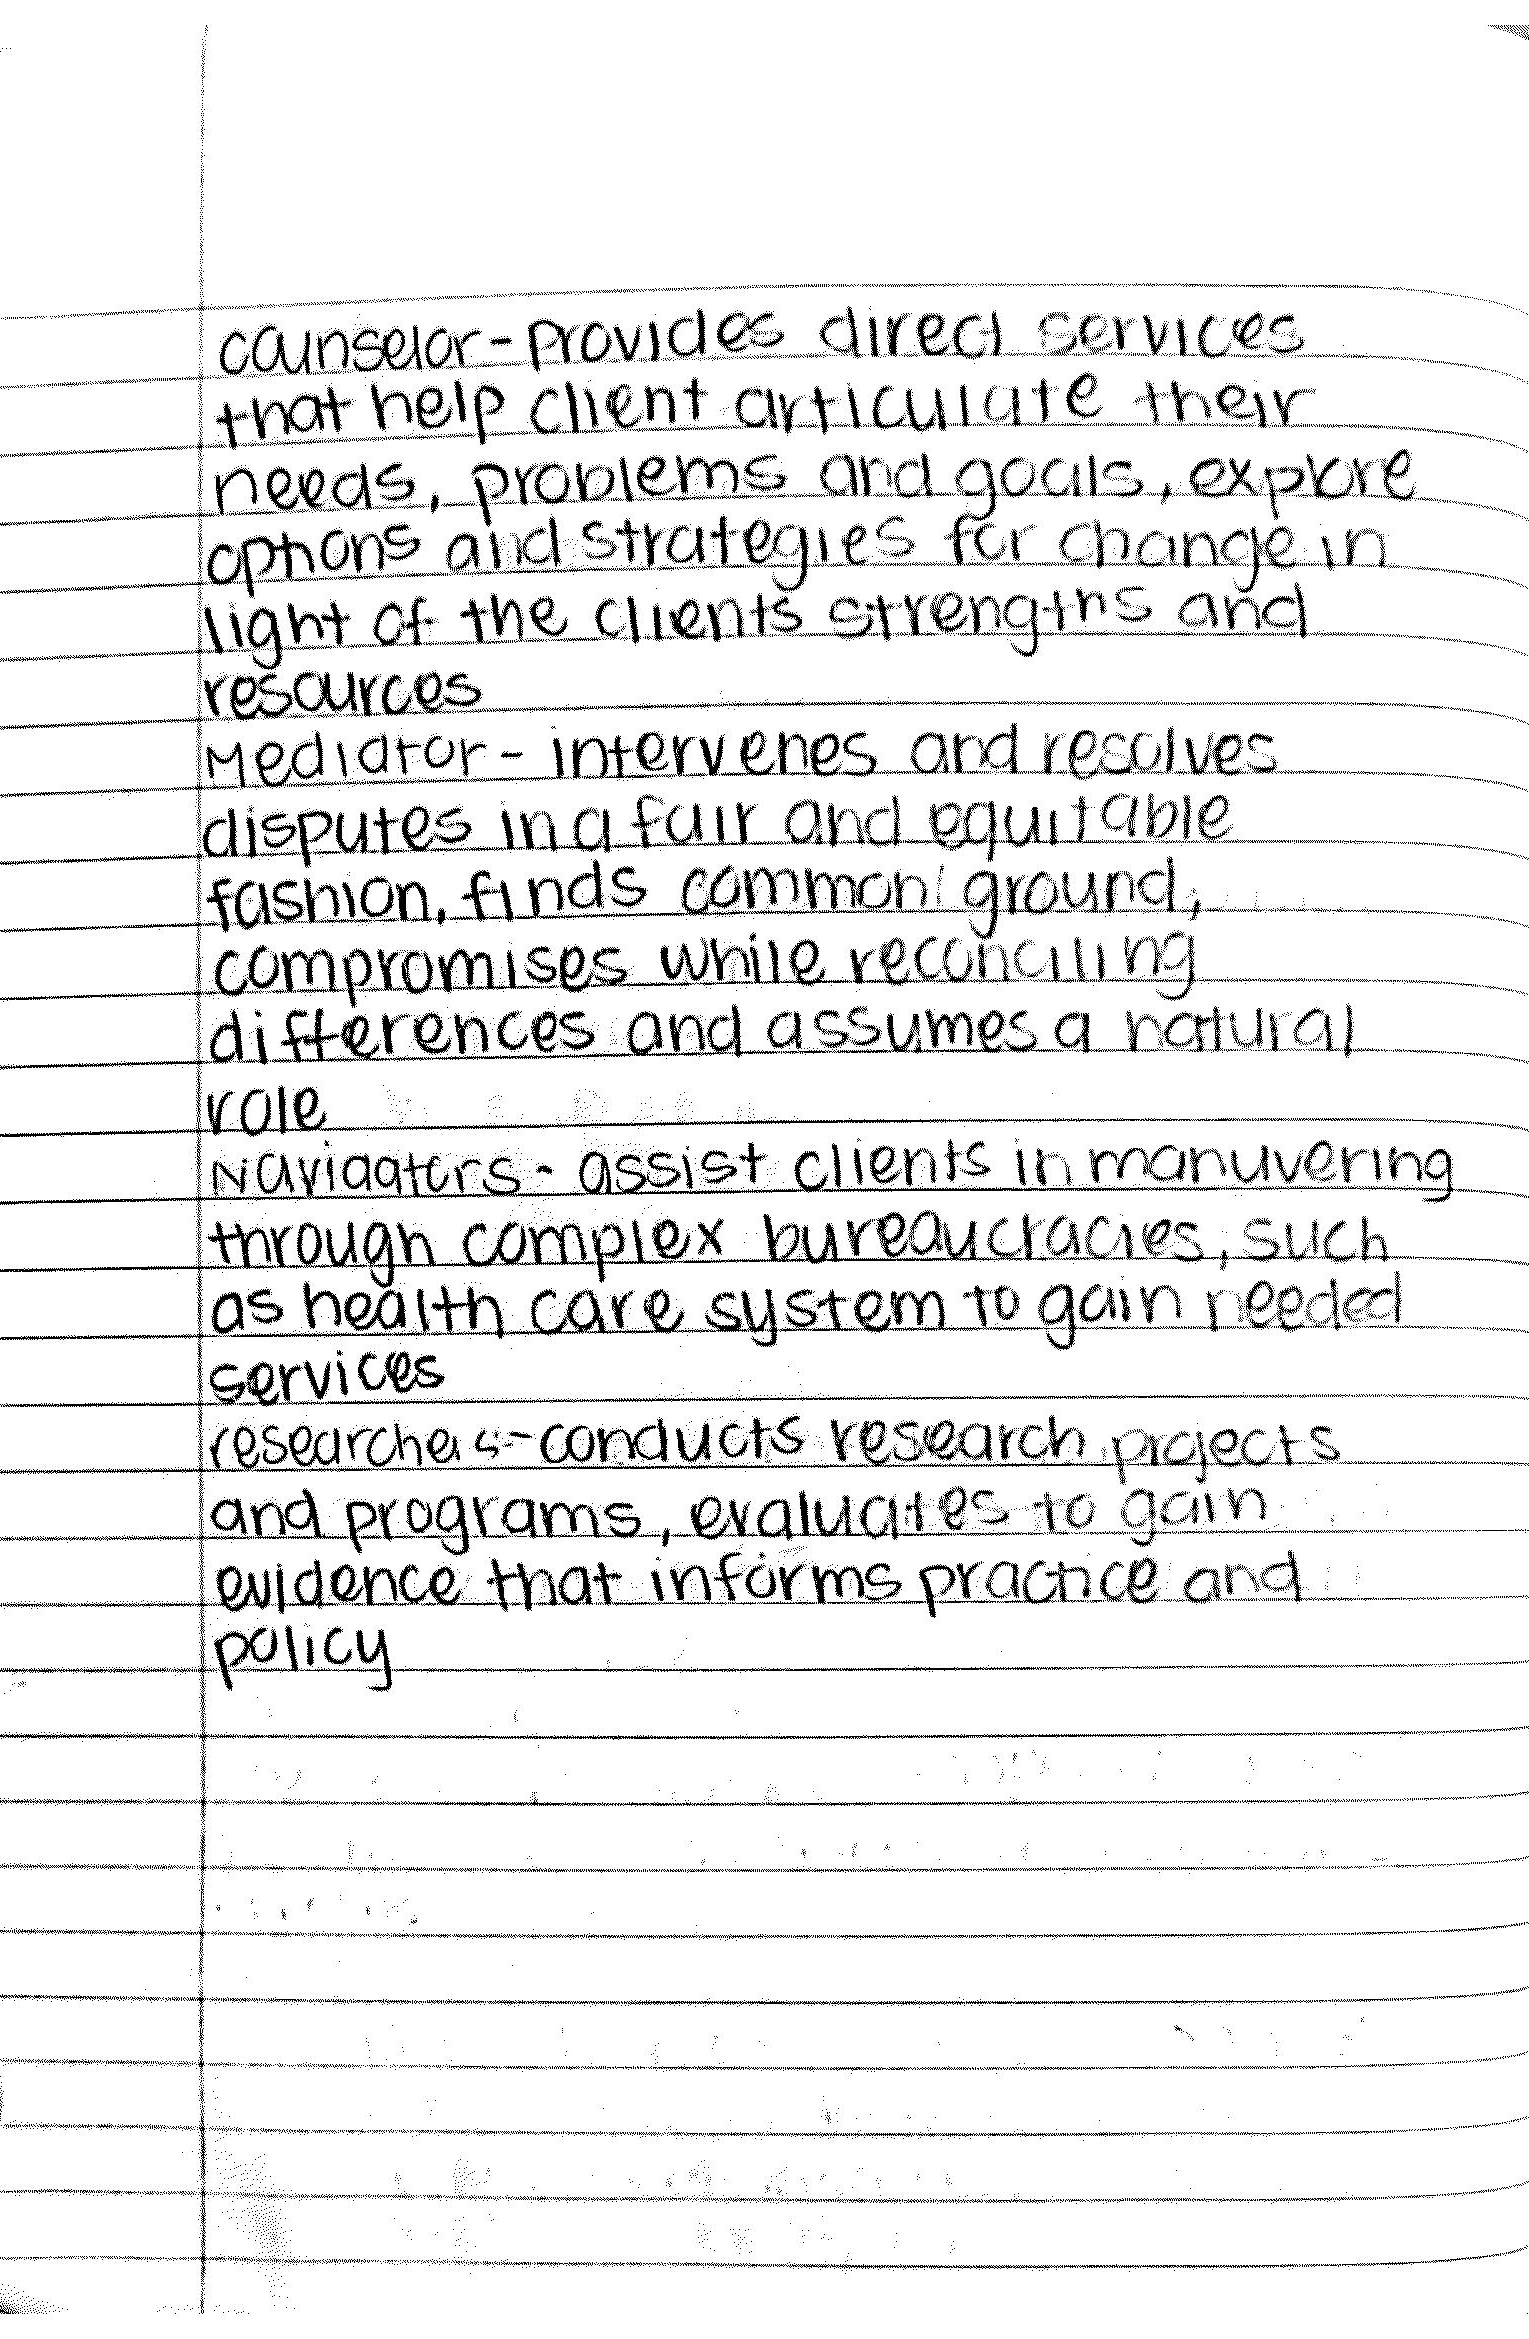 counselor-provides direct services
that help client articulate their
needs, problems and goals, explore
options and strategies for change in
light of the clients strengths and
resources
Mediator - intervenes and resolves
disputes in a fair and equitable
fashion, finds common ground,
compromises while reconciling
differences and assumes a natural
role
Navigators - assist clients in manuvering
through complex bureaucracies, such
as health care system to gain needed
services
researchers-conducts research projects
and programs, evaluates to gain
evidence that informs practice and
policy